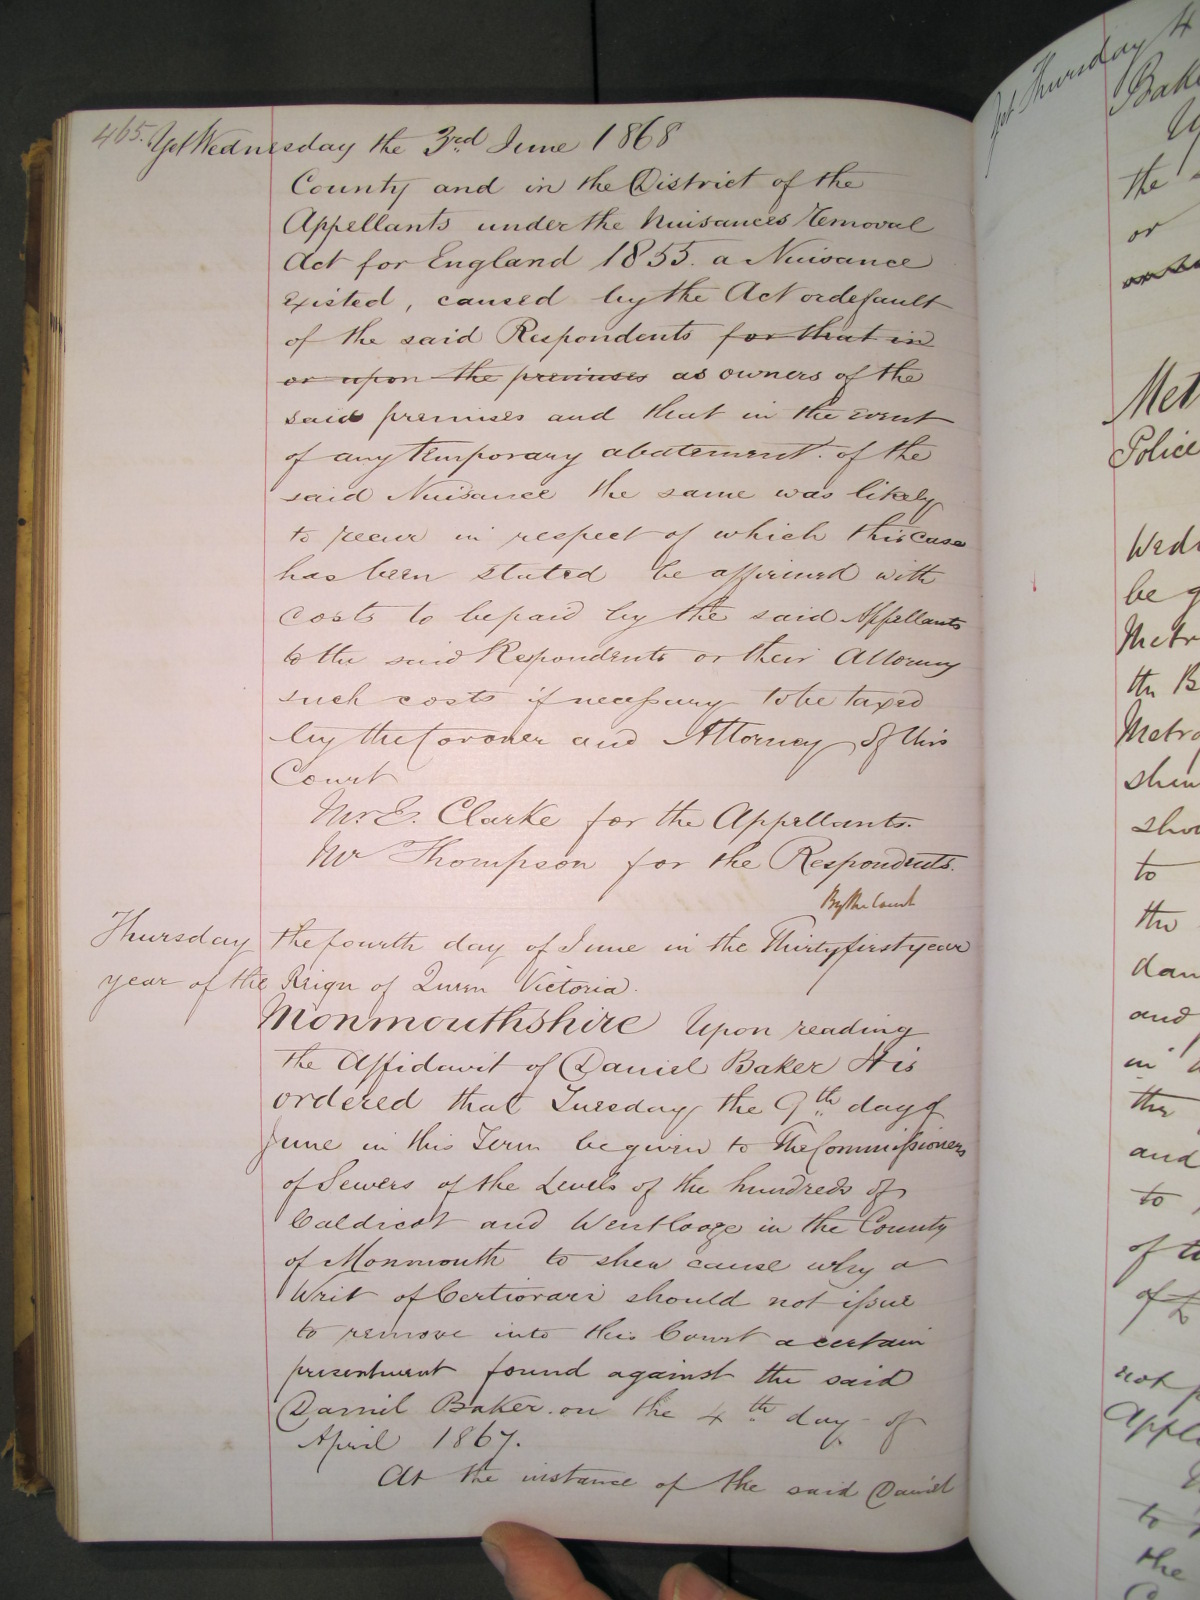 465. Yet Wednesday the 3rd June 1868
County and in the District of the
Appellants under the Nuisances Removal
Act for England 1855. a Nuisance
existed, caused by the Act or default
of the said Respondents for that in
or upon the premises as owners of the
said premises and that in the event
of any temporary abatement. of the
said Nuisance the same was likely
to recur in respect of which this case
has been stated be affirmed with
costs to be paid by the said Appellants
to the said Respondents or their Attorney
such costs if necessary to be taxed
by the Coroner and Attorney of this
Court
Mr E. Clarke for the Appellants.
Mr Thompson for the Respondents.
By the Court
Thursday the fourth day of June in the Thirty first year
year of the Reign of Queen Victoria.
Monmouthshire Upon reading
the Affidavit of Daniel Baker It is
ordered that Tuesday the 9th day of
June in this Term be given to The Commissioners
of Sewers of the Levels of the hundreds of
Caldicot and Wentlooge in the County
of Monmouth to shew cause why a
Writ of Certiorari should not issue
to remove into this Court a certain
presentment found against the said
Daniel Baker on the 4th day of
April 1867.
At the instance of the said Daniel
Yet Thursday 4
the
or
Police
be g
the B
to
the
and
in
the
and
to
of
not p
to
the